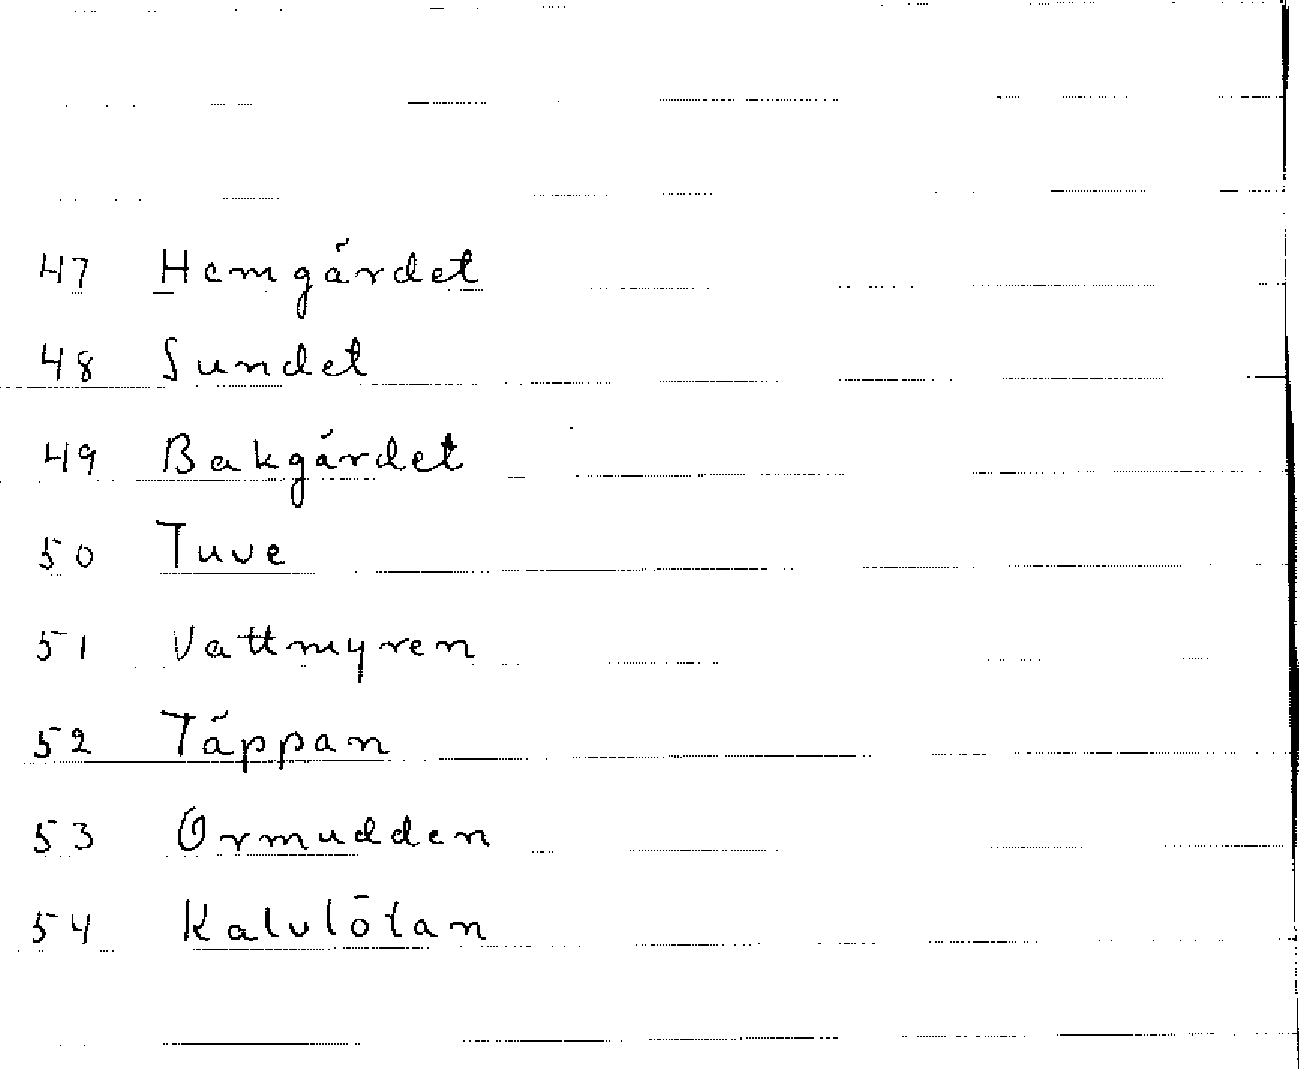 47 Hemgärdet
48 Sundet
49 Bakgärdet
50 Tuve
51 Vattmyren
52 Täppan
53 Ormudden
54 Kalvlötan